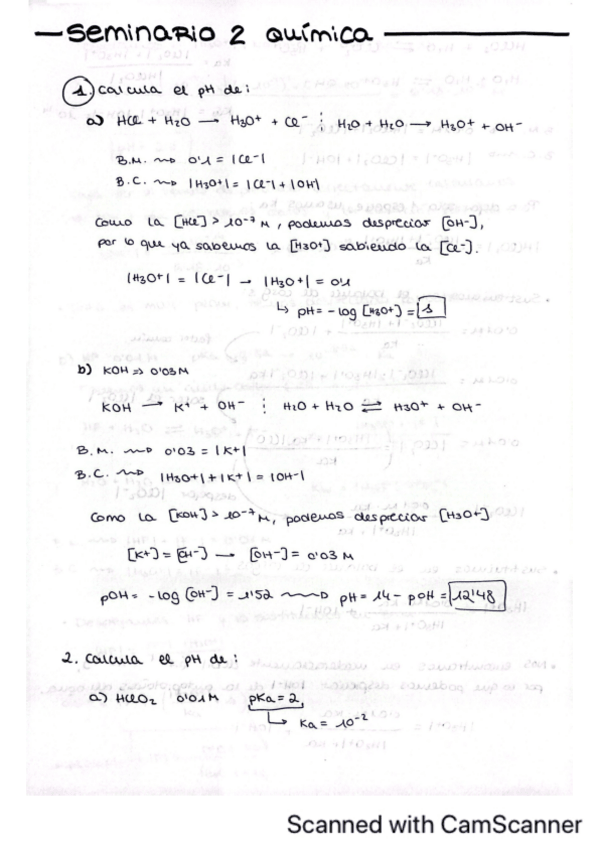 SEMINARIO 2 QUÍMICA
1. Calcula el pH de:
a) HCl + H2O → H3O+ + Cl- ⋮ H2O + H2O → H3O+ + OH-
B.M. ⇝ 0'1 = |Cl-|
B.C. ⇝ |H3O+| = |Cl-| + |OH|
Como la [HCl] > 10-7 M, podemos despreciar [OH-],
por lo que ya sabemos la [H3O+] sabiendo la [Cl-].
|H3O+| = |Cl-| → |H3O+| = 0'1
↳ pH = - log [H3O+] = 1
b) KOH ⇒ 0'03M
KOH → K+ + OH- ⋮ H2O + H2O ⇌ H3O+ + OH-
B.M. ⇝ 0'03 = |K+|
B.C. ⇝ |H3O+| + |K+| = |OH-|
Como la [KOH] > 10-7 M, podemos despreciar [H3O+]
[K+] = [OH-] → [OH-] = 0'03 M
pOH = - log [OH-] = 1'52 ⇝ pH = 14 - pOH = 12'48
2. Calcula el pH de:
a) HClO2 0'01M pKa = 2,
↳ Ka = 10-2
Scanned with CamScanner